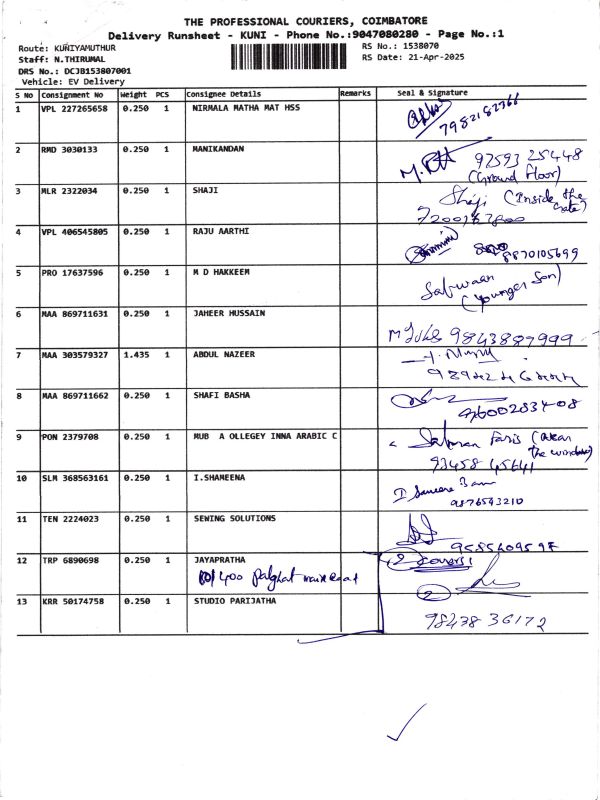 THE PROFESSIONAL COURIERS, COIMBATORE
Delivery Runsheet - KUNI - Phone No.:9047080280 - Page No.:1
Route: KUNIYAMUTHUR RS No.: 1538070
Staff: N.THIRUMAL RS Date: 21-Apr-2025
DRS No.: DCJB153807001
Vehicle: EV Delivery
S NO Consignment No Weight PCS Consignee Details Remarks Seal & Signature
1 VPL 227265658 0.250 1 NIRMALA MATHA MAT HSS
7982182768
2 RMD 3030133 0.250 1 MANIKANDAN 97593 25448
(Ground floor)
3 MLR 2322034 0.250 1 SHAJI Shaji (Inside the
Gate)
4 VPL 406545805 0.250 1 RAJU AARTHI 8870105699
5 PRO 17637596 0.250 1 M D HAKKEEM Safwaan
(Younger Son)
6 MAA 869711631 0.250 1 JAHEER HUSSAIN 9843887999
7 MAA 303579327 1.435 1 ABDUL NAZEER
8 MAA 869711662 0.250 1 SHAFI BASHA
9 PON 2379708 0.250 1 MUB A OLLEGEY INNA ARABIC C Salman Faris (Near
the window)
93458 45641
10 SLM 368563161 0.250 1 I.SHAMEENA
9876543210
11 TEN 2224023 0.250 1 SEWING SOLUTIONS
12 TRP 6890698 0.250 1 JAYAPRATHA 2 covers
400 Palghat main Road
13 KRR 50174758 0.250 1 STUDIO PARIJATHA 2
98438 36172